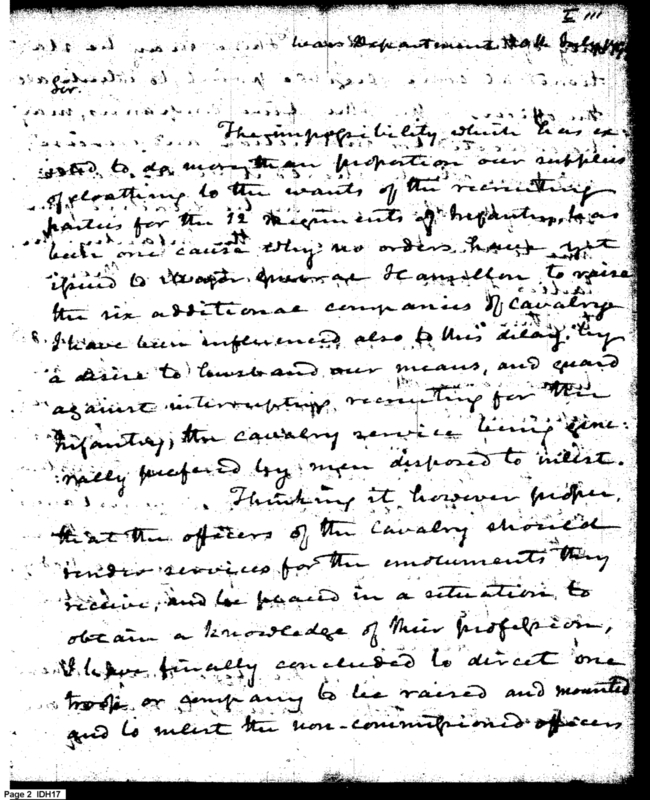 I
War Department
Sir.
The impossibility which has ex-
isted to do more than proportion our supplies
of cloathing to the wants of the recruiting
parties for the 12 Regiments of Infantry, has
been one cause why no orders have yet
issued to Major General Hamilton to raise
the six additional companies of Cavalry
I have been influenced also to this delay by
a desire to husband our means, and guard
against interrupting recruiting for the
Infantry, the cavalry service being gene-
rally preferred by men disposed to inlist.
Thinking it however proper,
that the officers of the Cavalry should
render services for the emoluments they
receive, and be placed in a situation to
obtain a knowledge of their profession,
I have finally concluded to direct one
troop or company to be raised and mounted
and to inlist the non-commissioned officers
Page 2 IDH17